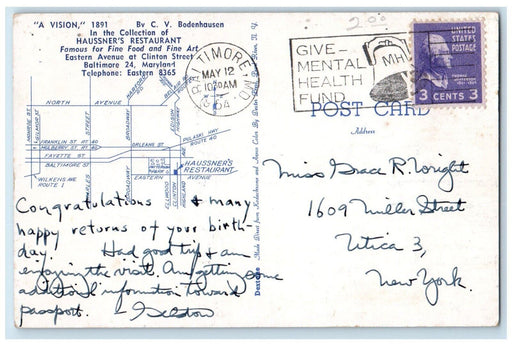 "A VISION," 1891 By C. V. Bodenhausen
In the Collection of
HAUSSNER'S RESTAURANT
Famous for Fine Food and Fine Art
Eastern Avenue at Clinton Street
Baltimore 24, Maryland
Telephone: Eastern 8365
2.00
BALTIMORE, MD.
MAY 12
10 30 AM
GIVE—
MENTAL
HEALTH
FUND
MH
UNITED STATES
POSTAGE
3 CENTS 3
POST CARD
Address
NORTH AVENUE
MONROE ST.
GILMOR ST.
FRANKLIN ST. RT 40
MULBERRY ST. RT 40
ORLEANS ST.
PULASKI HWY
ROUTE 40
FAYETTE ST.
BALTIMORE ST.
HAUSSNER'S
RESTAURANT
WILKENS AVE
ROUTE 1
CHARLES
STREET
BROADWAY
EASTERN AVENUE
CLINTON
HIGHLAND
Made Direct from Kodachrome and Ansco Color By Dexter Press, Pearl River, N. Y.
Miss Grace R. Wright
1609 Miller Street
Utica 3,
New York.
Congratulations & many
happy returns of your birth-
day. Had good trip & am
enjoying the visit. Am getting some
additional information toward
passport.